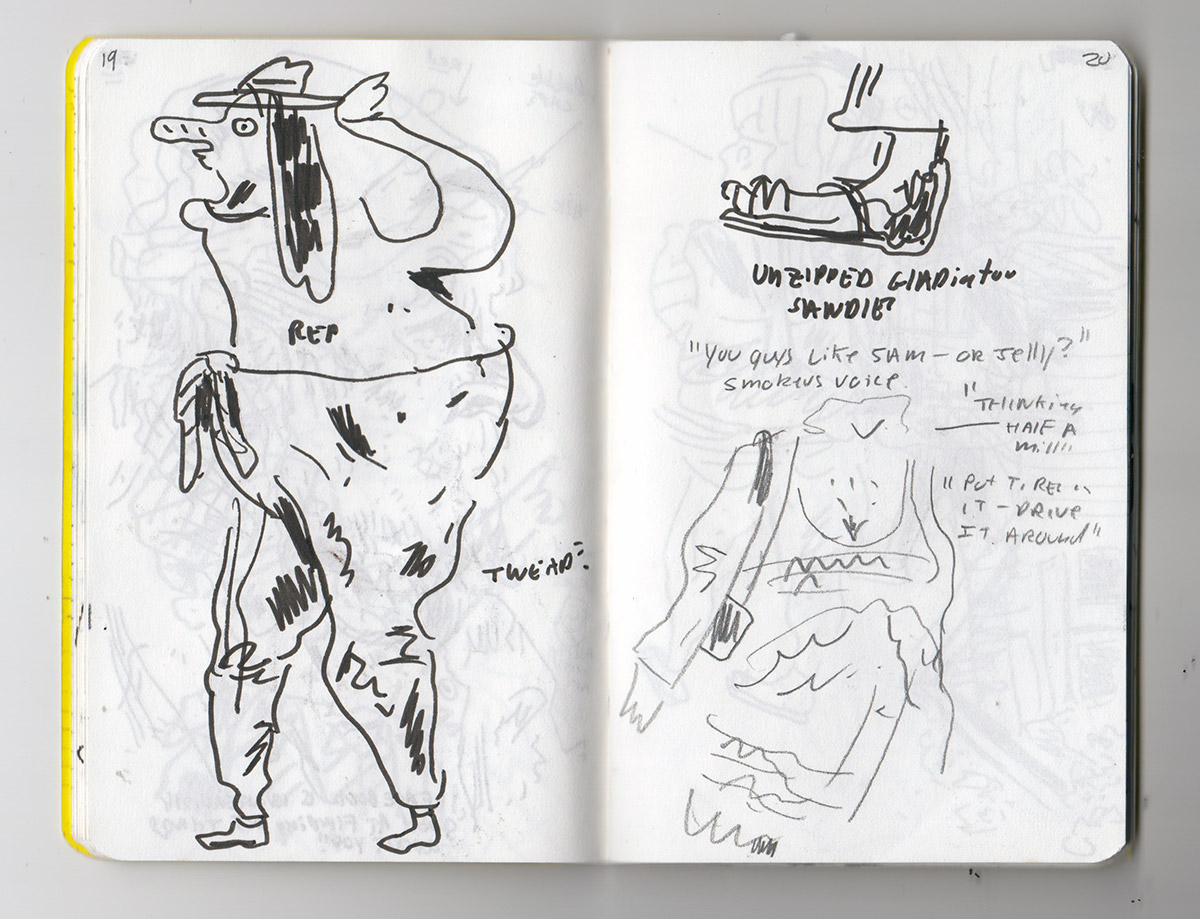 19
RED
TWEAD?
20
UNZIPPED GLADiatOr
SANDLE
"You guys Like JAM – OR Jelly?"
smokers voice.
"THINKing
HALF A
milli
" Put TiRes
IT – DRIVE
IT AROUND"